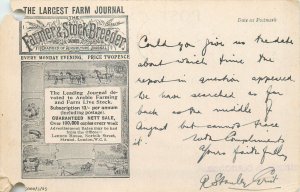 THE LARGEST FARM JOURNAL
THE
Farmer & Stock Breeder
EVERY MONDAY EVENING, PRICE TWOPENCE
The Leading Journal de-
voted to Arable Farming
and Farm Live Stock.
Subscription 13/- per annum
(including postage)
GUARANTEED NETT SALE,
Over 100,000 copies every week
Advertisement Rates may be had
from the Offices:
Lennox House, Norfolk Street,
Strand, London, W.C.2.
Date as Postmark
Could you give us the date
about which time the
report in question appeared
we have searched as far
back as the middle of
August but cannot trace
it. With Compliments
Yours faithfully
R Stanley